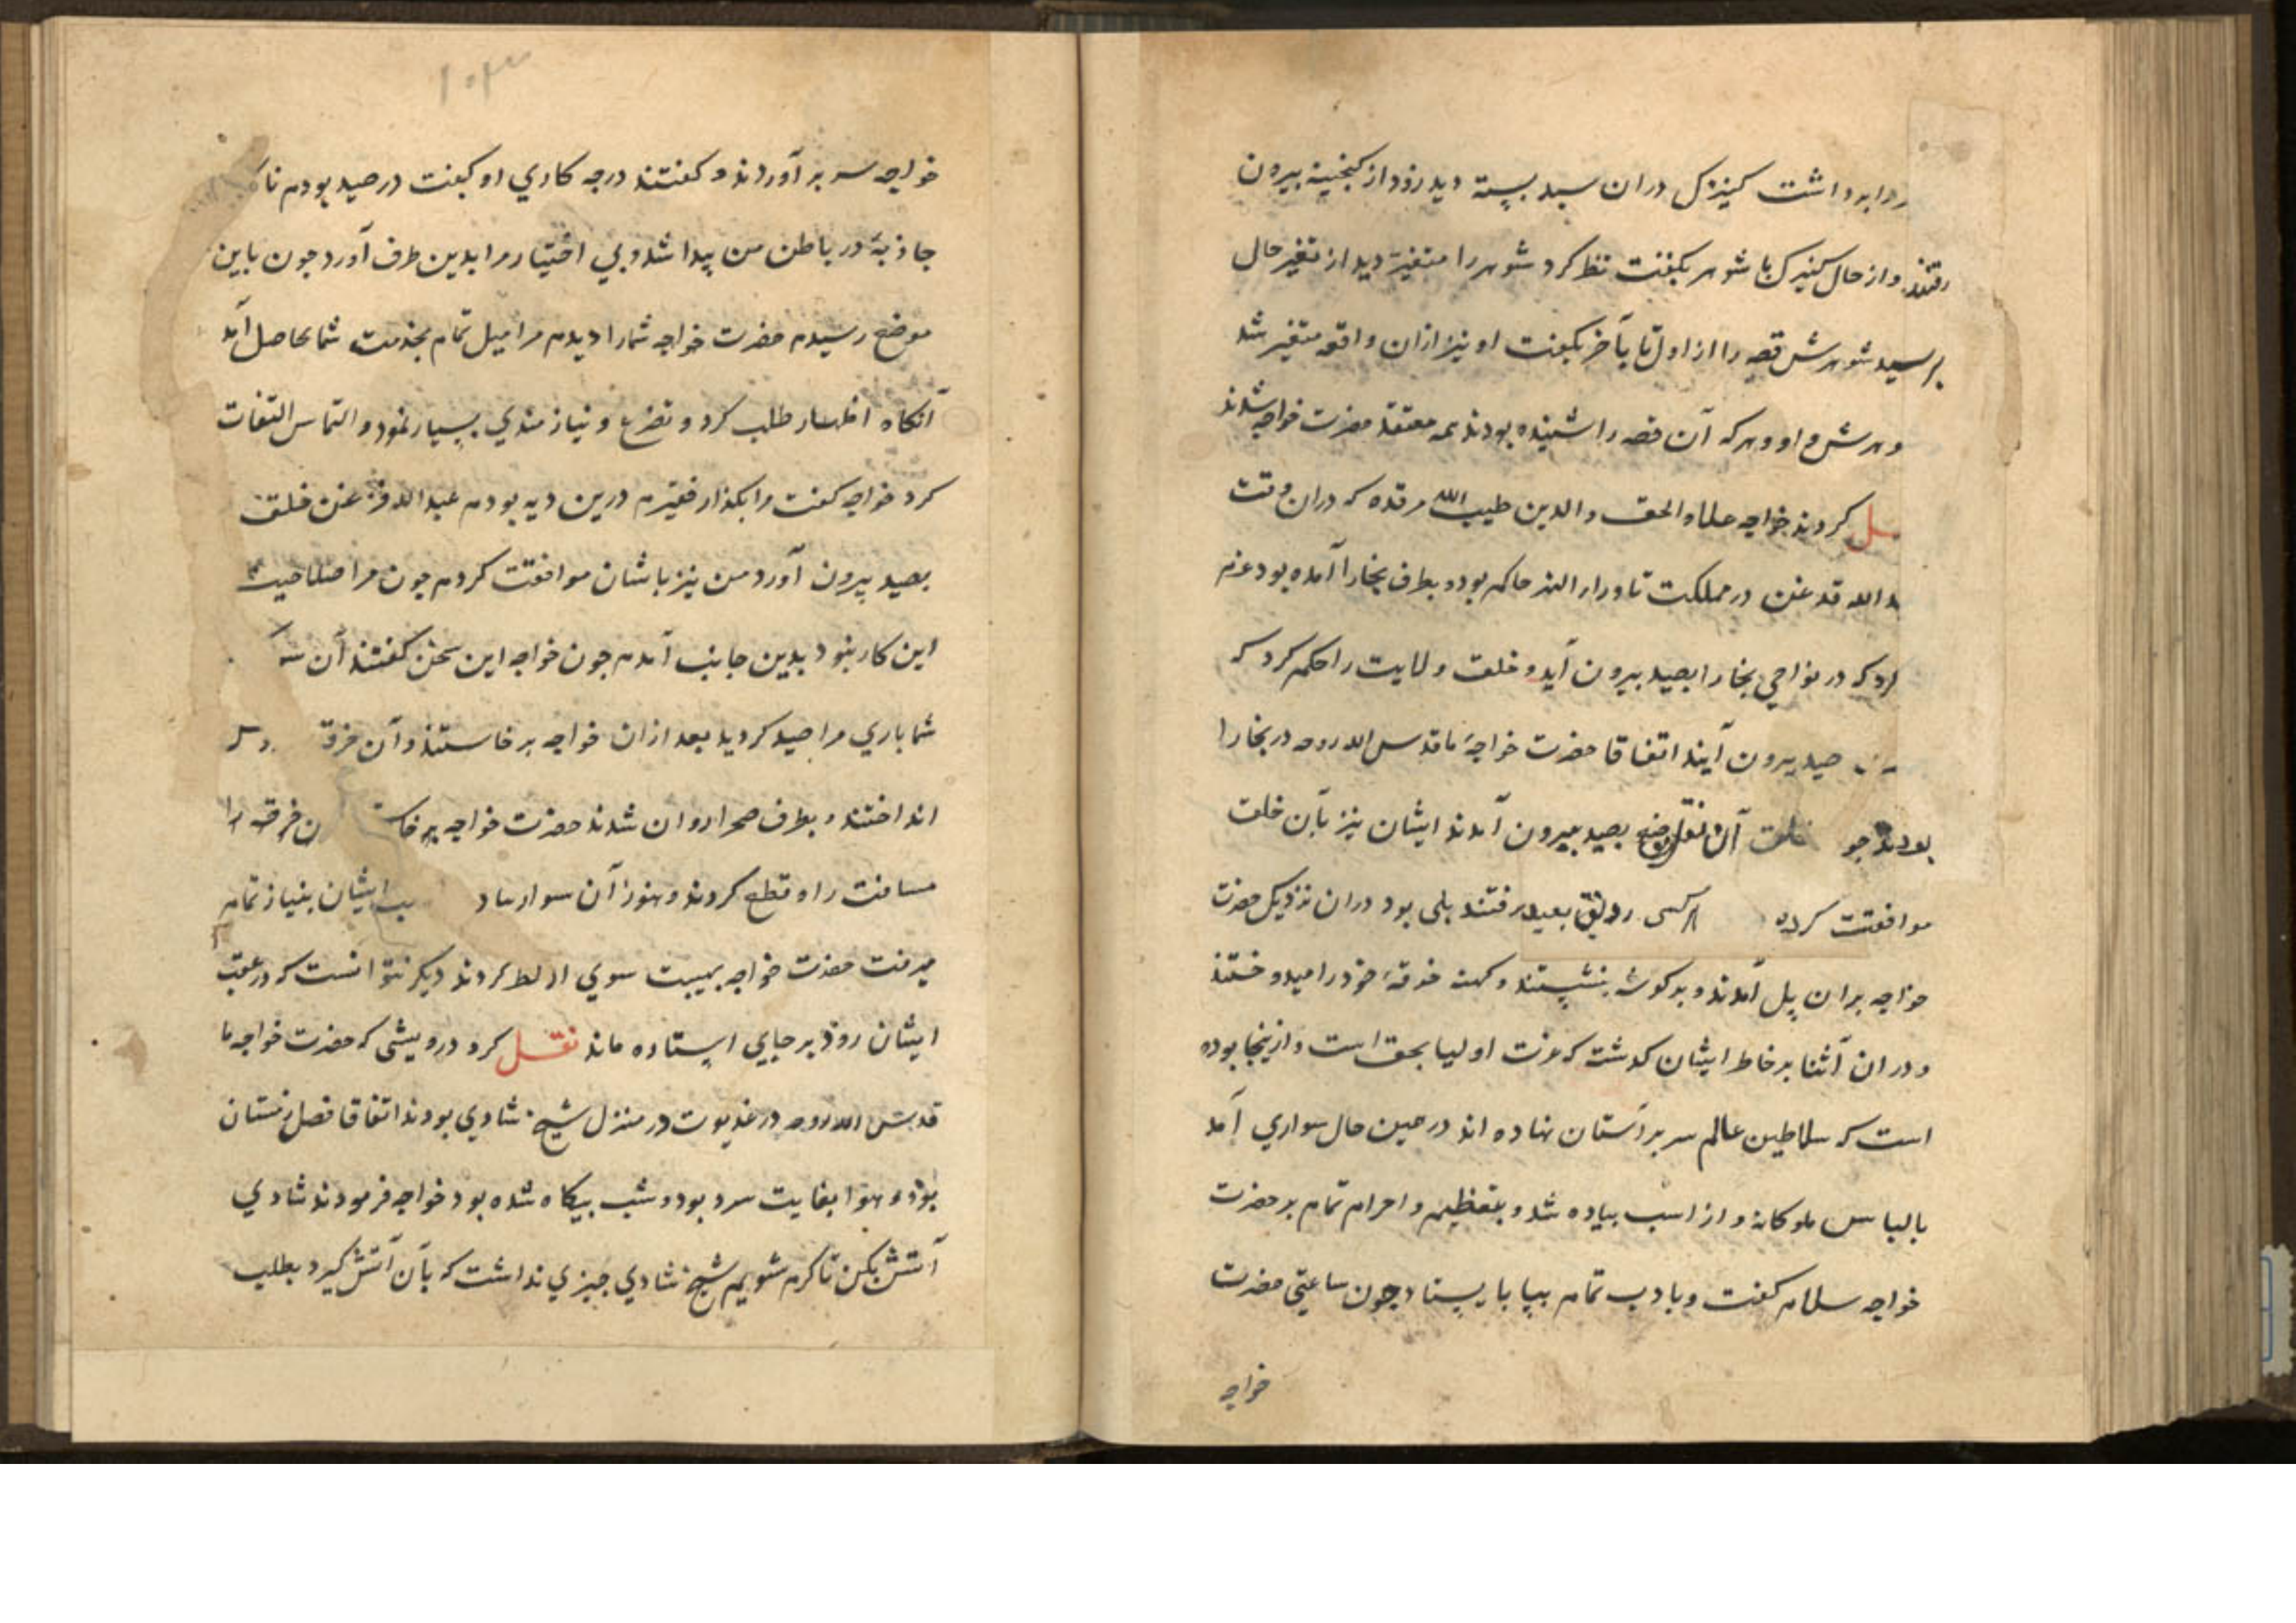 را برداشت کنیزک دران سبد بسته دید زود از کنجینه بیرون
رفتند و از حال کنیزک با شوهر بکفت نظر کرد شوهر را متغیر دید از تغیر حال
پرسید شوهرش قصه را از اول تا بآخر بکفت او نیز ازان واقعه متغیر شد
و هرکه آن قصه را شنیده بودند همه معتقد حضرت خواجه شدند
کردند خواجه علاء الحق و الدین طیب الله مرقده که دران وقت
الله قدغن در مملکت ماورار النهر حاکم بود و بطرف بخارا آمده بود عزم
کرد که در نواحی بخارا بصید بیرون آید و خلق ولایت را حکم کرد که
صید بیرون آیند اتفاقا حضرت خواجهٔ ما قدس الله روحه در بخارا
بودند خلق آن موضع بصید بیرون آمدند ایشان نیز بآن خلق
موافقت کرده بصید رفتند پلی بود دران نزدیک حضرت
خواجه بران پل آمدند و بر کوشه بنشستند و کهنه خرقهٔ خود را میدوختند
و دران اثنا بر خاطر ایشان کذشت که عزت اولیا بحق است و ازینجا بوده
است که سلاطین عالم سر بر آستان نهاده اند در حین حال سواری آمد
بالباس ملوکانه و از اسب بیاده شد و بتعظیم و احرام تمام بر حضرت
خواجه سلام کفت و بادب تمام بپا بایستاد جون ساعتی حضرت
خواجه
۱۵۳
خواجه سر بر آوردند و کفتند درجه کاری او کفت در صید بودم ناکاه
جاذبهٔ در باطن من پیدا شد و بی اختیار مرا بدین طرف آورد جون باین
موضع رسیدم حضرت خواجه شما را دیدم مرا میل تمام بخدمت شما حاصل آمد
آنکاه اظهار طلب کرد و تضرع و نیازمندی بسیار نمود و التماس التفات
کرد خواجه کفت مرا بکذار فقیرم درین دیه بودم عبد الله قزغن خلق
بصید بیرون آورد من نیز باشان موافقت کردم جون مرا صلاحیت
این کار نبود بدین جانب آمدم جون خواجه این سخن کفتند آن
شما باری مرا صید کردید بعد ازان خواجه برخاستند و آن خرقه
انداختند و بطرف صحرا روان شدند حضرت خواجه خرقه را
مسافت راه قطع کردند و هنوز آن سوار ایشان بنیاز تمام
میرفت حضرت خواجه بهیبت سوی او نظر کردند دیکر نتوانست که در عقب
ایشان رود بر جایی ایستاده ماند نقل کرد درویشی که حضرت خواجه ما
قدس الله روحه در غدیوت در منزل شیخ شادی بودند اتفاقا فصل زمستان
بود و هوا بغایت سرد بود و شب بیکاه شده بود خواجه فرمودند شادی
آتش بکن تا کرم شویم شیخ شادی جیزی نداشت که بآن آتش کیرد بطلب